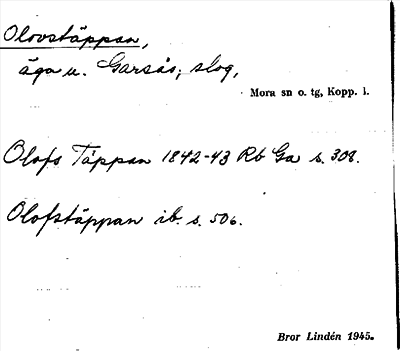 Olovstäppan,
äga u. Garsås, slog,
Mora sn o. tg, Kopp. l.
Olofs Täppan 1842-43 Rb Ga s. 308.
Olofstäppan ib. s. 506.
Bror Lindén 1945.